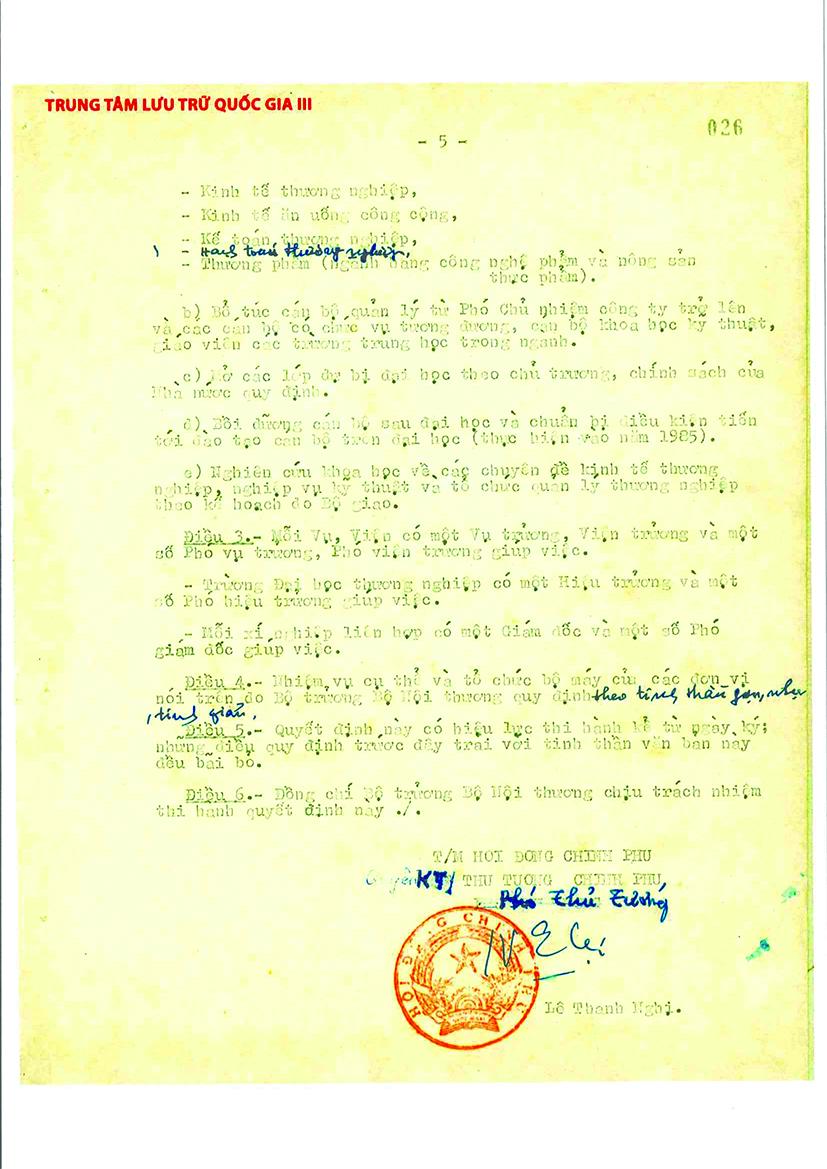 TRUNG TÂM LƯU TRỮ QUỐC GIA III
026
- 5 -
- Kinh tế thương nghiệp,
- Kinh tế ăn uống công cộng,
- Kế toán thương nghiệp,
- Hạch toán thương nghiệp,
- Thương phẩm (Ngành hàng công nghệ phẩm và nông sản
thực phẩm).
b) Bổ túc cán bộ quản lý từ Phó Chủ nhiệm công ty trở lên
và các cán bộ có chức vụ tương đương, cán bộ khoa học kỹ thuật,
giáo viên các trường trung học trong ngành.
c) Mở các lớp dự bị đại học theo chủ trương, chính sách của
Nhà nước quy định.
d) Bồi dưỡng cán bộ sau đại học và chuẩn bị điều kiện tiến
tới đào tạo cán bộ trên đại học (thực hiện vào năm 1985).
e) Nghiên cứu khoa học về các chuyên đề kinh tế thương
nghiệp, nghiệp vụ kỹ thuật và tổ chức quản lý thương nghiệp
theo kế hoạch do Bộ giao.
Điều 3.- Mỗi Vụ, Viện có một Vụ trưởng, Viện trưởng và một
số Phó vụ trưởng, Phó viện trưởng giúp việc.
- Trường Đại học thương nghiệp có một Hiệu trưởng và một
số Phó hiệu trưởng giúp việc.
- Mỗi xí nghiệp liên hợp có một Giám đốc và một số Phó
giám đốc giúp việc.
Điều 4.- Nhiệm vụ cụ thể và tổ chức bộ máy của các đơn vị
nói trên do Bộ trưởng Bộ Nội thương quy định theo tinh thần gọn, nhẹ
, tinh giản.
Điều 5.- Quyết định này có hiệu lực thi hành kể từ ngày ký;
những điều quy định trước đây trái với tinh thần văn bản này
đều bãi bỏ.
Điều 6.- Đồng chí Bộ trưởng Bộ Nội thương chịu trách nhiệm
thi hành quyết định này ./.
T/M HỘI ĐỒNG CHÍNH PHỦ
KT/ THỦ TƯỚNG CHÍNH PHỦ
Phó Thủ Tướng
HỘI ĐỒNG CHÍNH PHỦ
Lê Thanh Nghị.